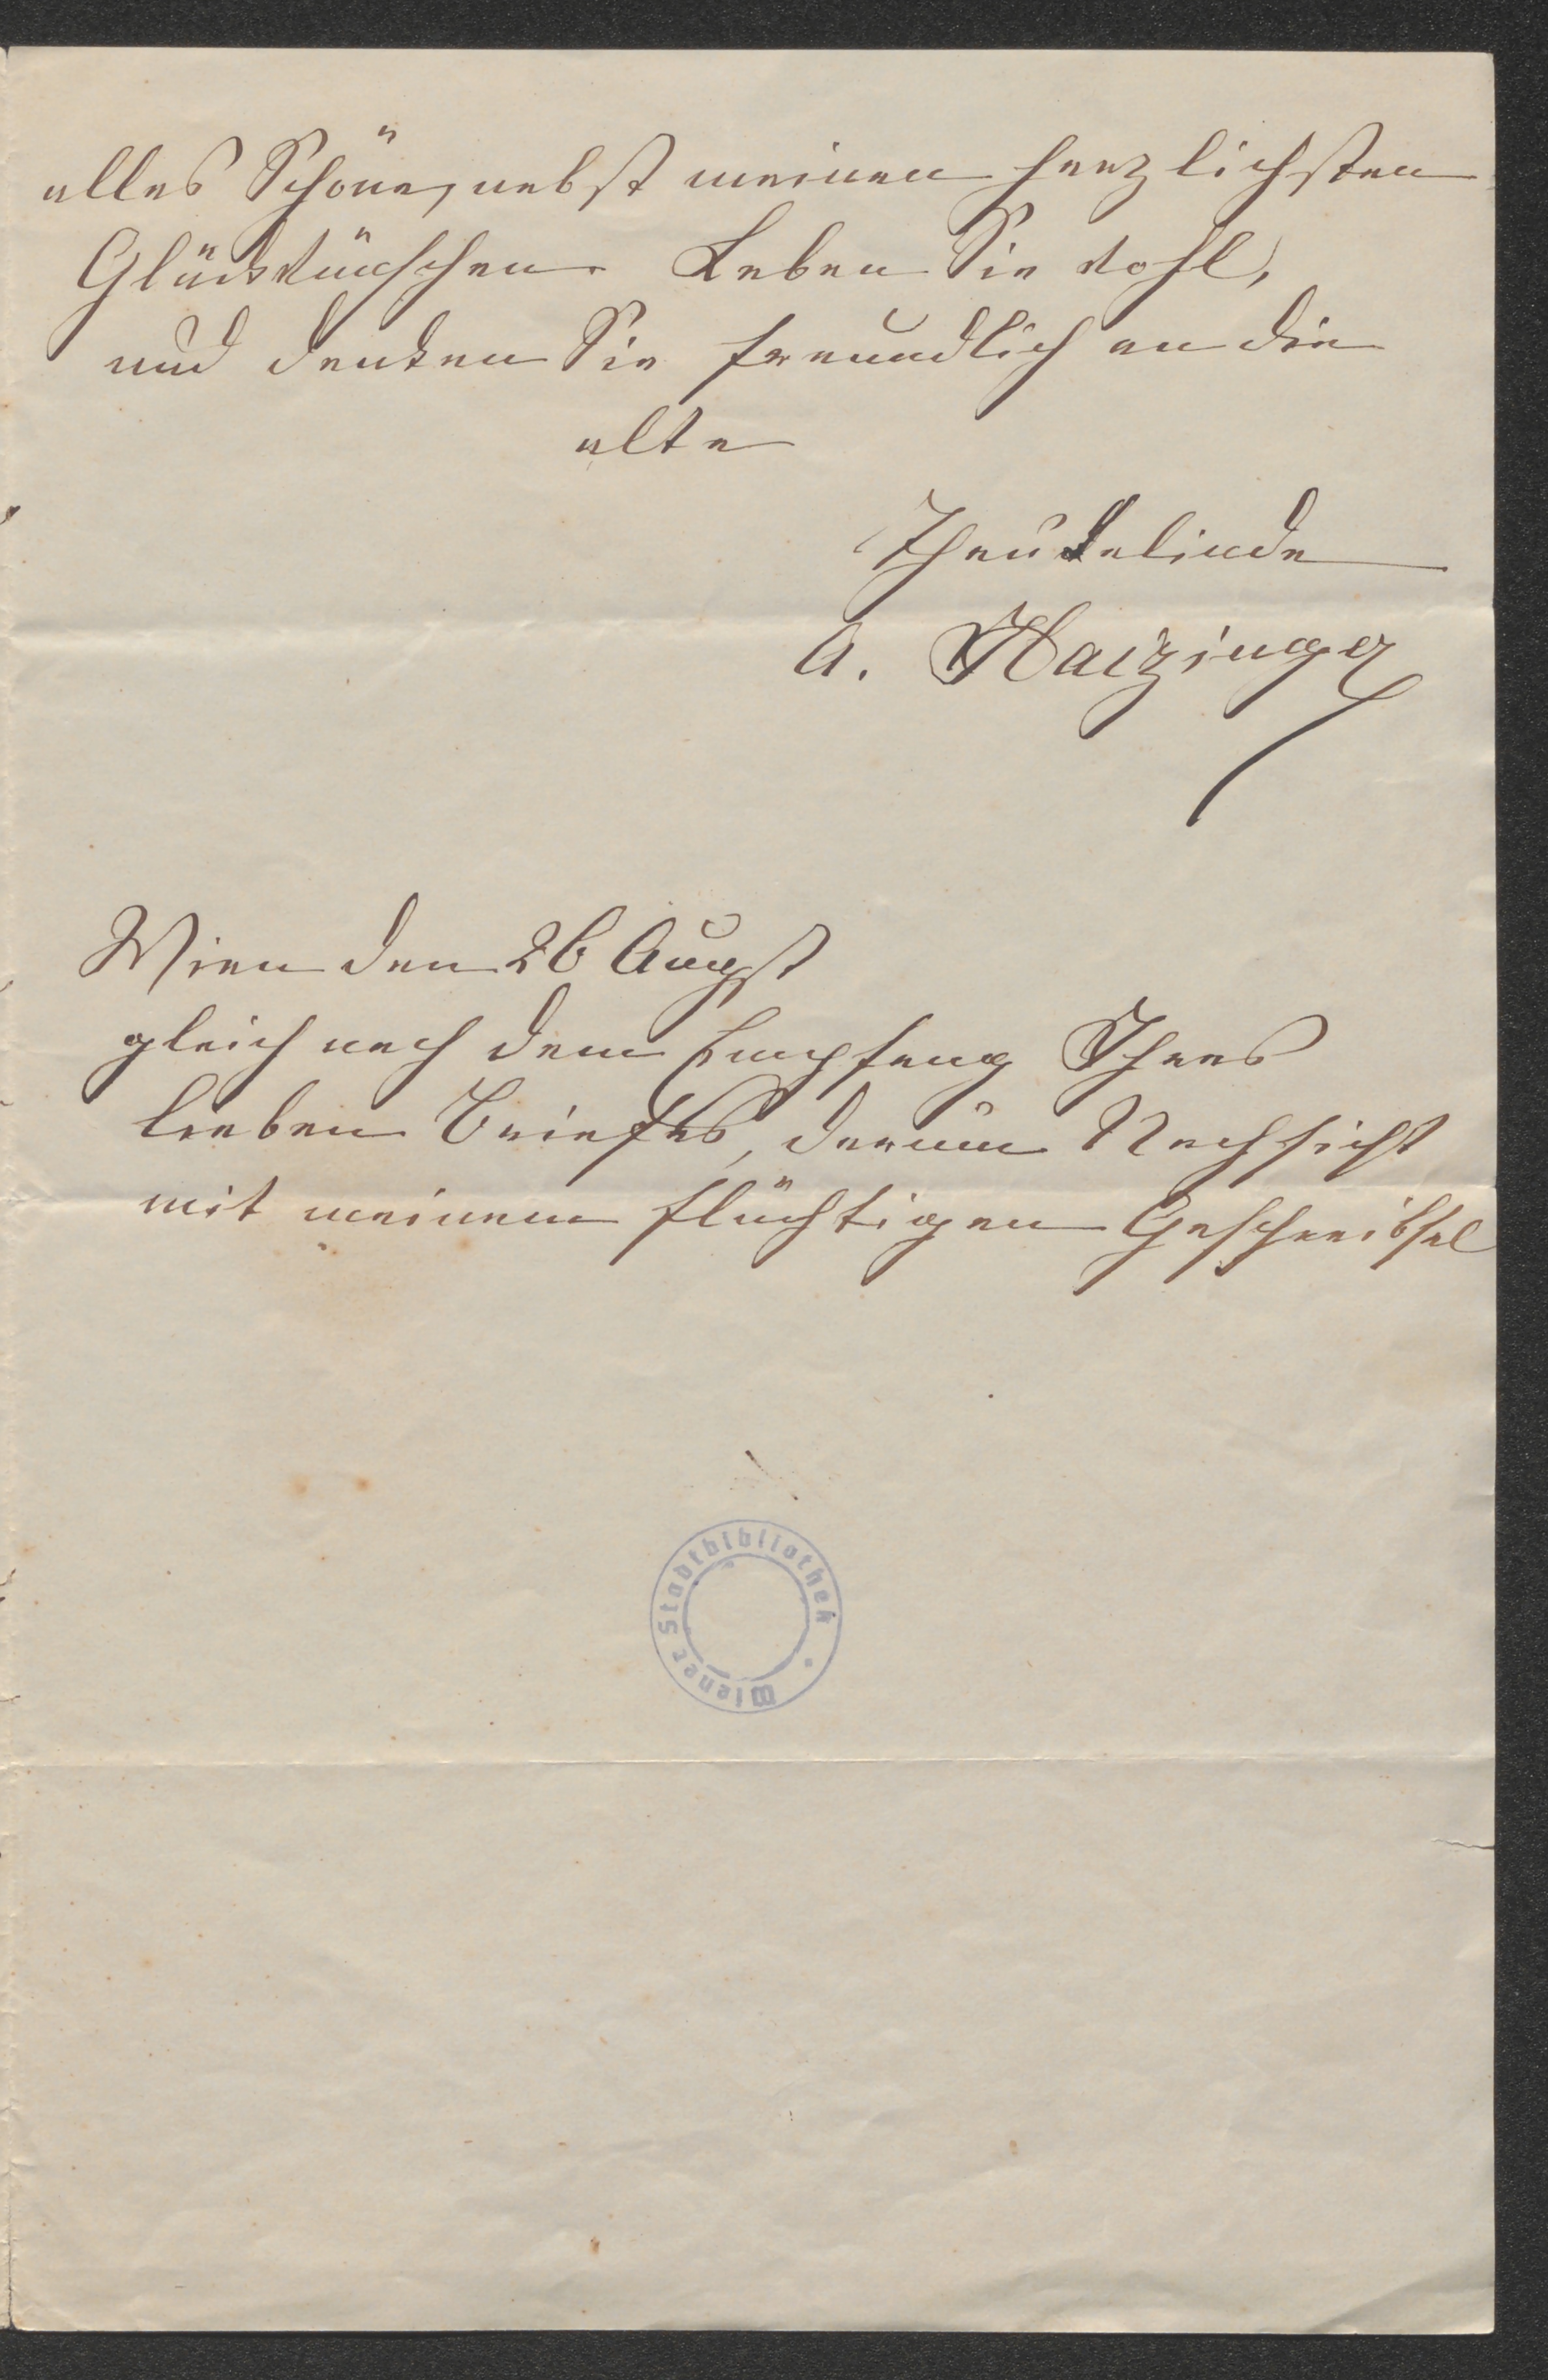 alles Schöne, nebst meinen herzlichsten
Glückwünschen. Leben Sie wohl,
und denken Sie freundlich an die
alte
Theudelinde
A. Haizinger
Wien den 26 August
gleich nach dem Empfang Ihres
lieben Briefes, darum Nachsicht
mit meinem flüchtigen Geschreibsel
Wiener Stadtbibliothek